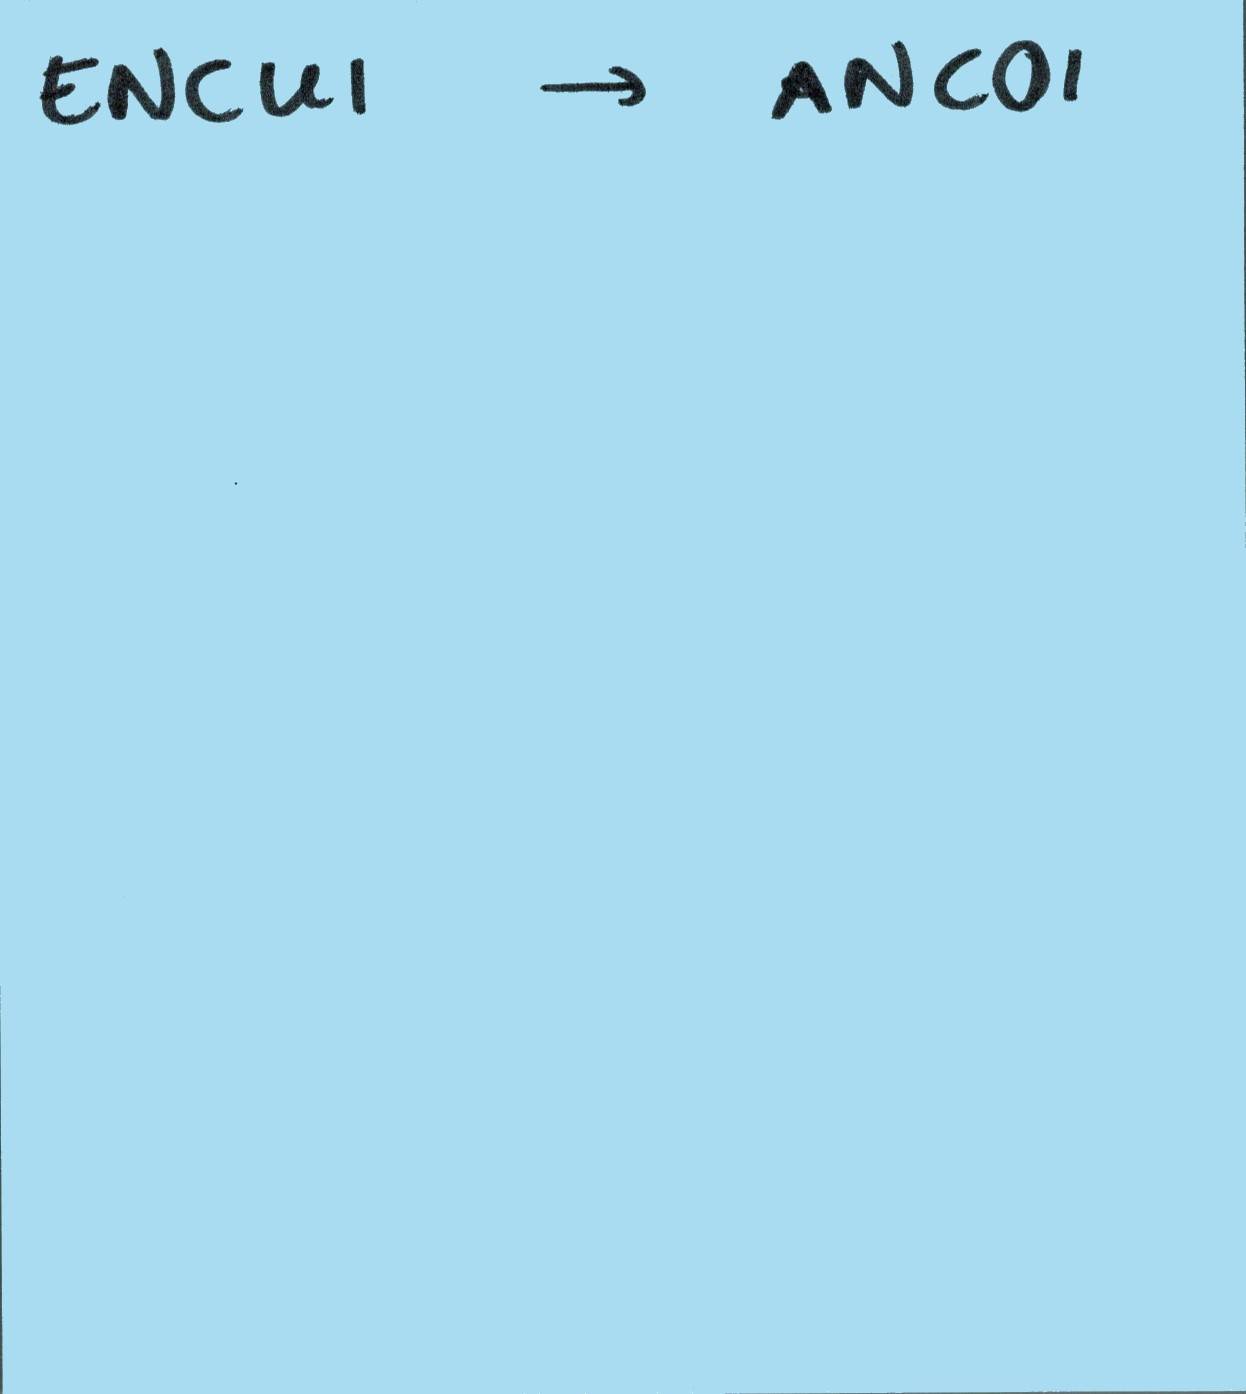 ENCUI → ANCOI